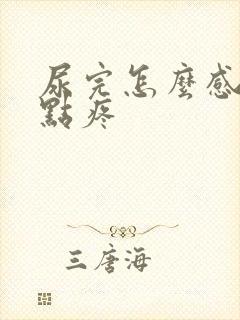 尿完怎麼感
點疼
三唐海